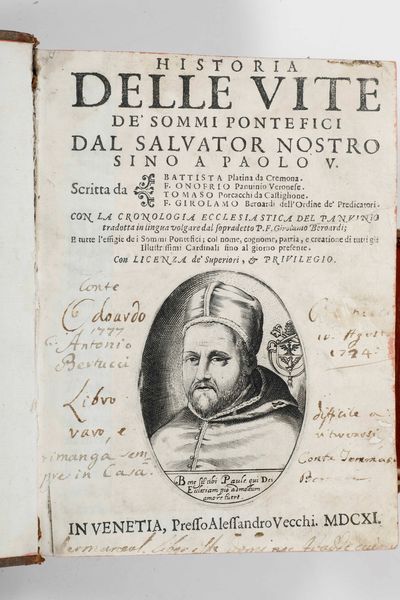 HISTORIA
DELLE VITE
DE' SOMMI PONTEFICI
DAL SALVATOR NOSTRO
SINO A PAOLO V.
Scritta da
BATTISTA Platina da Cremona.
F. ONOFRIO Panuinio Veronese.
TOMASO Porcacchi da Castiglione.
F. GIROLAMO Bernardi dell'Ordine de' Predicatori.
CON LA CRONOLOGIA ECCLESIASTICA DEL PANVINIO
tradotta in lingua volgare dal sopradetto P. F. Girolamo Bernardi;
E tutte l'effigie de i Sommi Pontefici; col nome, cognome, patria, e creatione di tutti gli
Illustrissimi Cardinali fino al giorno presente.
Con LICENZA de' Superiori, & PRIVILEGIO.
Conte
Edoardo
1777
Antonio
Bertucci
Libro
raro, e
rimanga sem
pre in Casa.
Agosto
1724.
difficile a
Conte
Bene sit tibi Paule qui Dei
Ecclesiam
amore
IN VENETIA, Presso Alessandro Vecchi. MDCXI.